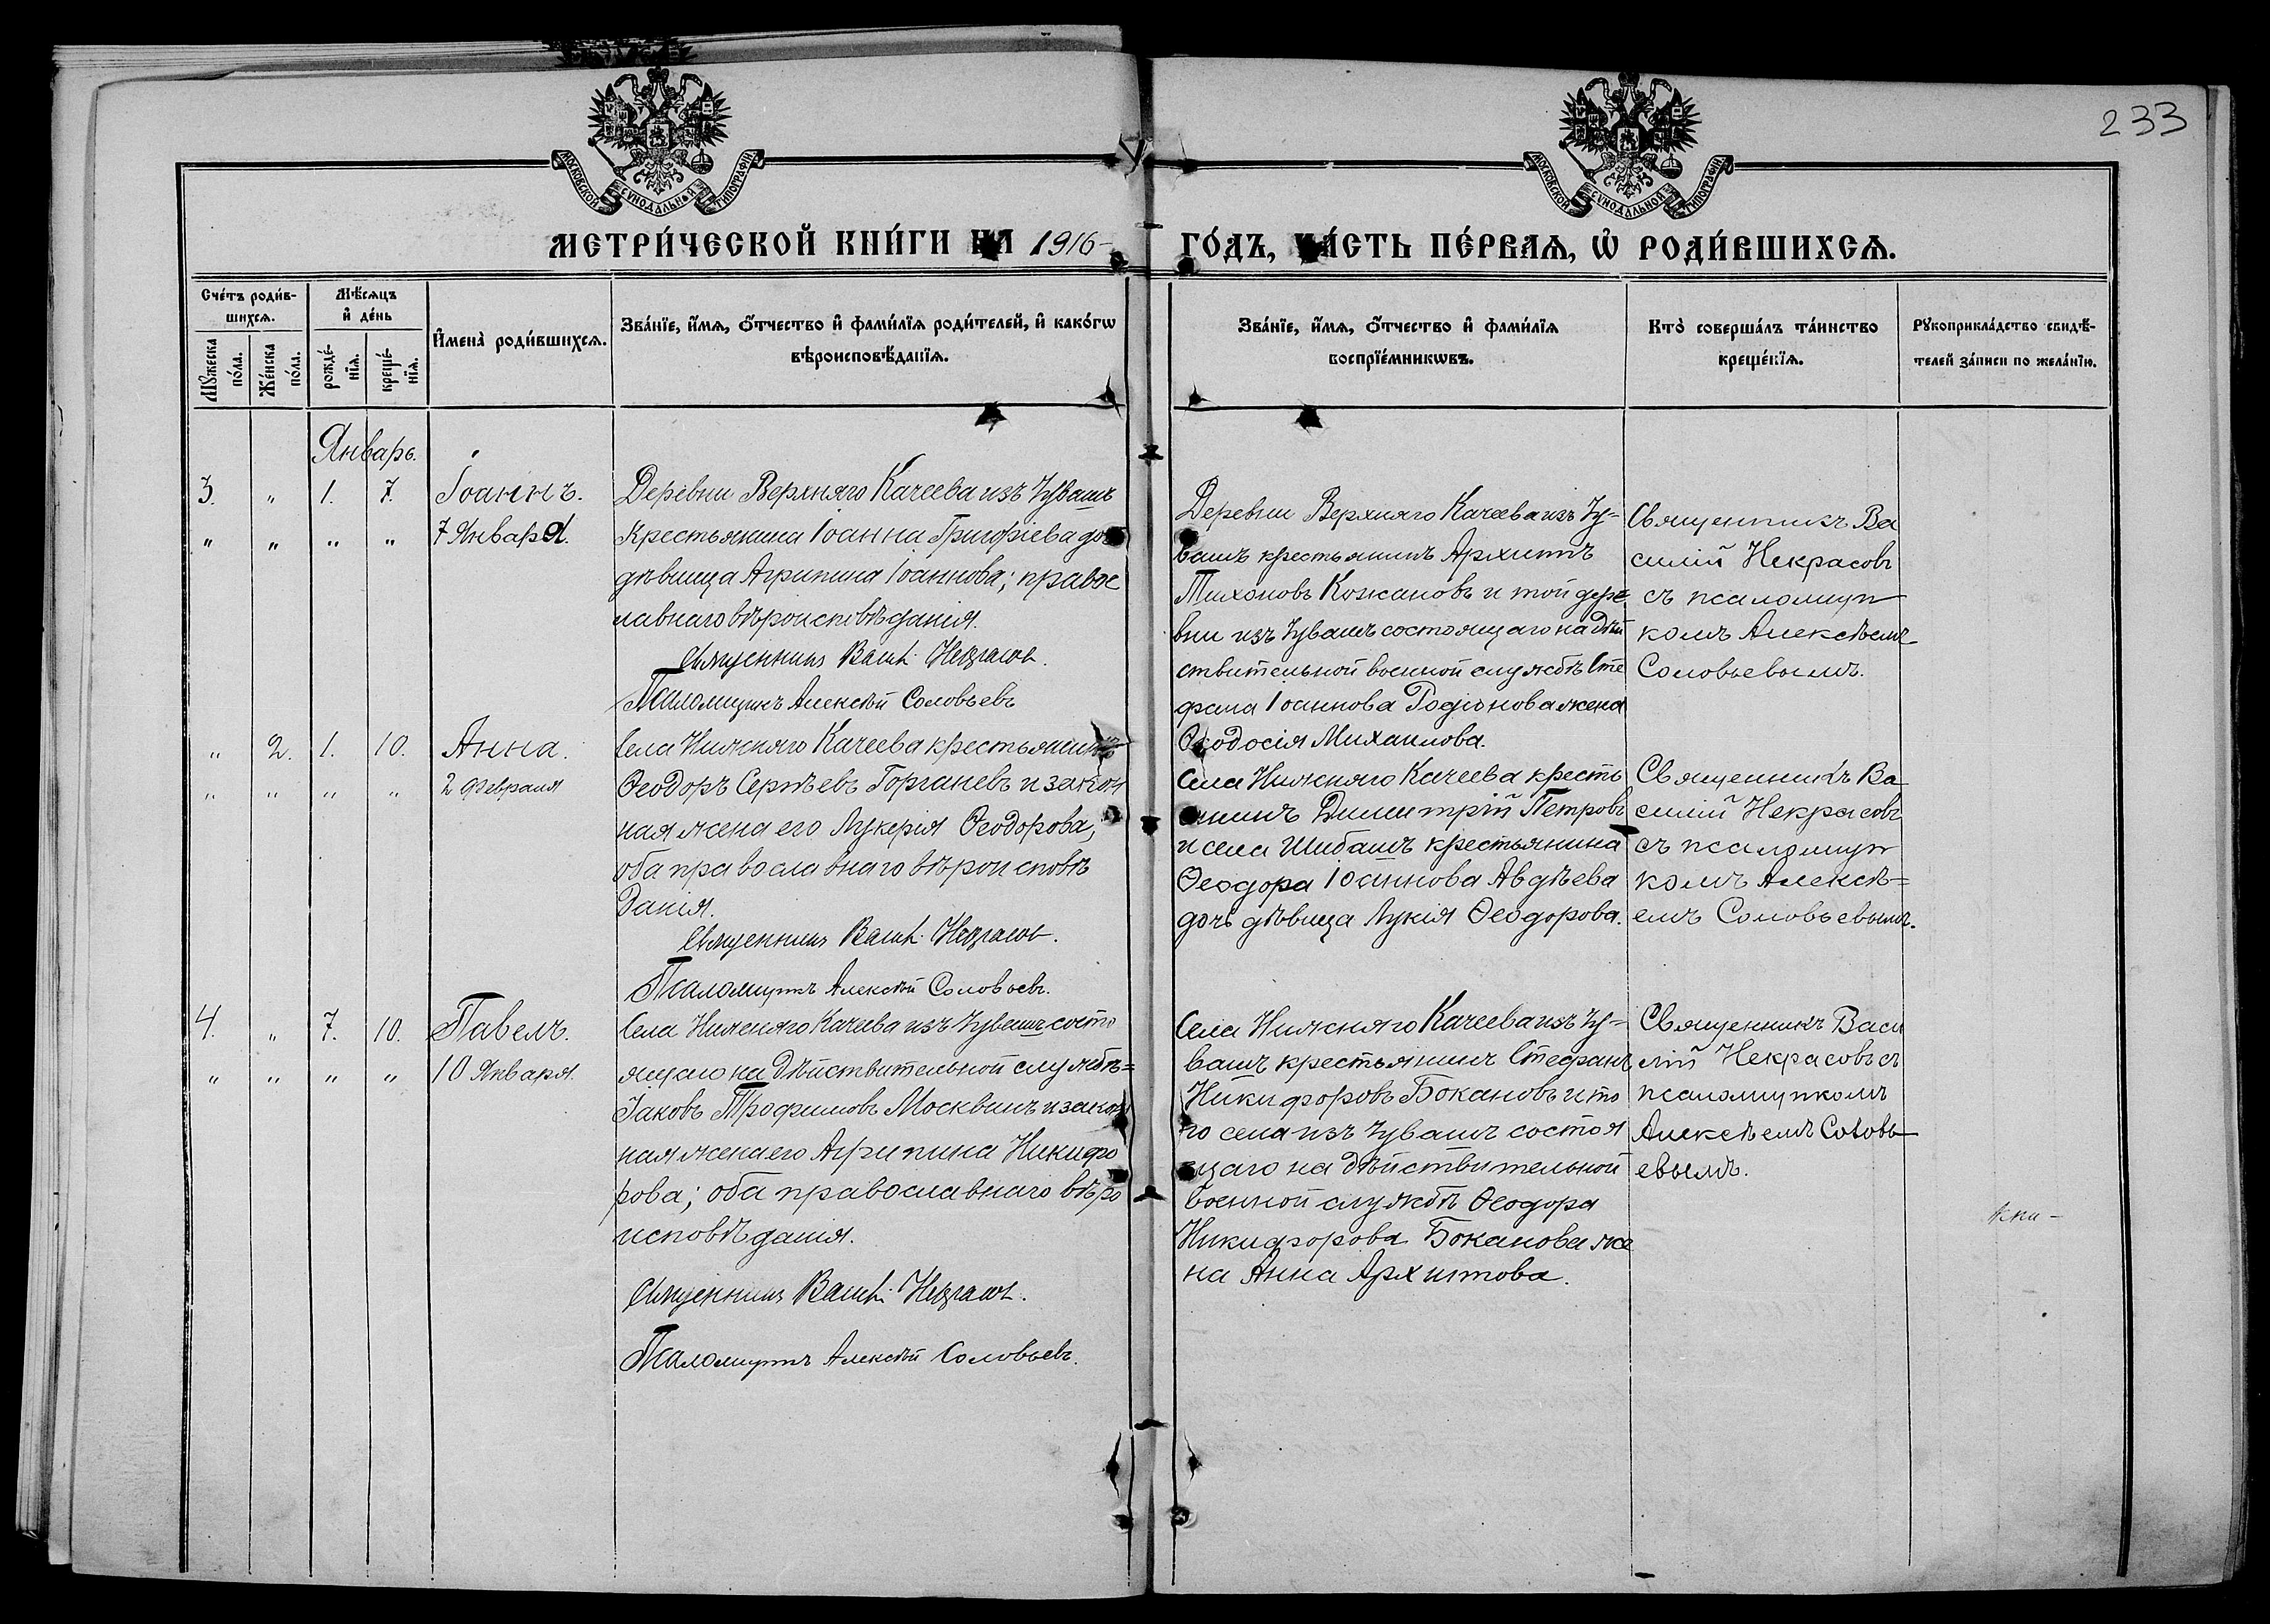 233
МОСКОВСКОЙ СѴНОДАЛЬНОЙ ТИПОГРАФІИ
МОСКОВСКОЙ СѴНОДАЛЬНОЙ ТИПОГРАФІИ
МЕТРИ́ЧЕСКОЙ КНИ́ГИ НА 1916 ГО́ДЪ, ЧА́СТЬ ПЕ́РВАѦ, Ѡ҆ РОДИ́ВШИХСѦ.
Сче́тъ роди́в-
шихсѧ.
Мꙋ́жеска
по́ла.
Же́нска
по́ла.
Мѣ́сѧцъ
и҆ де́нь
рожде́-
нїѧ.
креще́-
нїѧ.
И҆мена̀ роди́вшихсѧ.
Зва́нїе, и҆́мѧ, ѻ҆́тчество и҆ фами́лїѧ роди́телей, и҆ како́гѡ
вѣроисповѣ́данїѧ.
Зва́нїе, и҆́мѧ, ѻ҆́тчество и҆ фами́лїѧ
воспрїе́мникѡвъ.
Кто̀ соверша́лъ та́инство
креще́нїѧ.
Рꙋкоприкла́дство свидѣ́-
телей за́писи по жела́нїю.
Январь.
3. „ 1. 7. Іоаннъ.
„ „ „ „ 7 Января.
Деревни Верхняго Качеева изъ Чувашъ
крестьянина Іоанна Григоріева дочь
дѣвица Агрипина Іоаннова; правос
лавнаго вѣроисповѣданія.
Священникъ Васил. Некрасовъ.
Псаломщикъ Алексѣй Соловьевъ
Деревни Верхняго Качеева изъ Чу=
вашъ крестьянинъ Архипъ
Тихоновъ Кожановъ и той дере
вни изъ Чувашъ состоящаго на дѣй
ствительной военной службѣ Сте
фана Іоаннова Родіонова жена
Ѳеодосія Михаилова.
Священникъ Ва
силій Некрасовъ
съ псаломщи
комъ Алексѣемъ
Соловьевымъ.
„ 2. 1. 10. Анна.
„ „ „ „ 2 Февраля
Села Нижняго Качеева крестьянинъ
Ѳеодоръ Сергѣевъ Горганевъ и закон
ная жена его Лукерія Ѳеодорова;
оба православнаго вѣроисповѣ
данія.
Священникъ Васил. Некрасовъ.
Псаломщикъ Алексѣй Соловьевъ.
Села Нижняго Качеева кресть
янинъ Димитрій Петровъ
и села Шибашъ крестьянина
Ѳеодора Іоаннова Авдѣева
дочь дѣвица Лукія Ѳеодорова.
Священникъ Ва
силій Некрасовъ
съ псаломщи
комъ Алексѣ=
емъ Соловьевымъ.
4. „ 7. 10. Павелъ.
„ „ „ „ 10 Января.
Села Нижняго Качеева изъ Чувашъ состо
ящаго на дѣйствительной службѣ=
Іаковъ Трофимовъ Москвинъ и закон
ная жена его Агрипина Никифо
рова; оба православнаго вѣро
исповѣданія.
Священникъ Васил. Некрасовъ.
Псаломщикъ Алексѣй Соловьевъ.
Села Нижняго Качеева изъ Чу=
вашъ крестьянинъ Стефанъ
Никифоровъ Бокановъ и то
го села изъ Чувашъ состоя
щаго на дѣйствительной
военной службѣ Ѳеодора
Никифорова Боканова же
на Анна Архипова.
Священникъ Васи
лій Некрасовъ съ
псаломщикомъ
Алексѣемъ Соловь
евымъ.